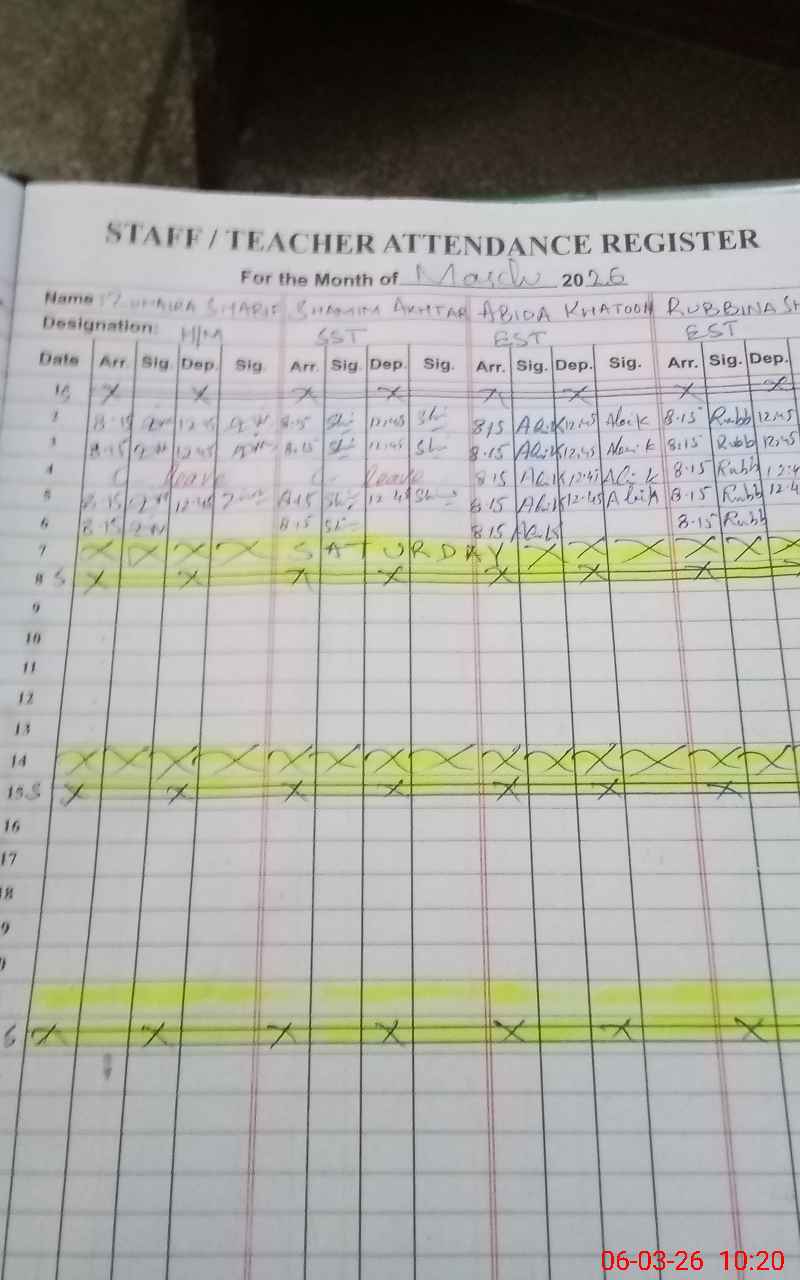 STAFF / TEACHER ATTENDANCE REGISTER
For the Month of March 2026
Name : SHARIF SHAMIM AKHTAR ABIDA KHATOON RUBBINA SH
Designation: H/M SST EST EST
Date Arr. Sig. Dep. Sig. Arr. Sig. Dep. Sig. Arr. Sig. Dep. Sig. Arr. Sig. Dep.
1S X X X X X X X X
2 8.15 12.45 8.15 Sh 12.45 Sh 8.15 12.45 8.15 Rubb 12.45
3 8.15 12.45 8.15 Sh 12.45 Sh 8.15 12.45 8.15 Rubb 12.45
4 C leave C leave 8.15 12.45 8.15 Rubb 12.4
5 8.15 12.45 8.15 Sh 12.45 Sh 8.15 12.45 8.15 Rubb 12.4
6 8.15 8.15 Sh 8.15 8.15 Rubb
7 X X X X SATURDAY X X X X X X
8 S X X X X X X X
9
10
11
12
13
14 X X X X X X X X X X X X X X X
15 S X X X X X X X
16
17
18
9
S X X X X X X X
06-03-26 10:20